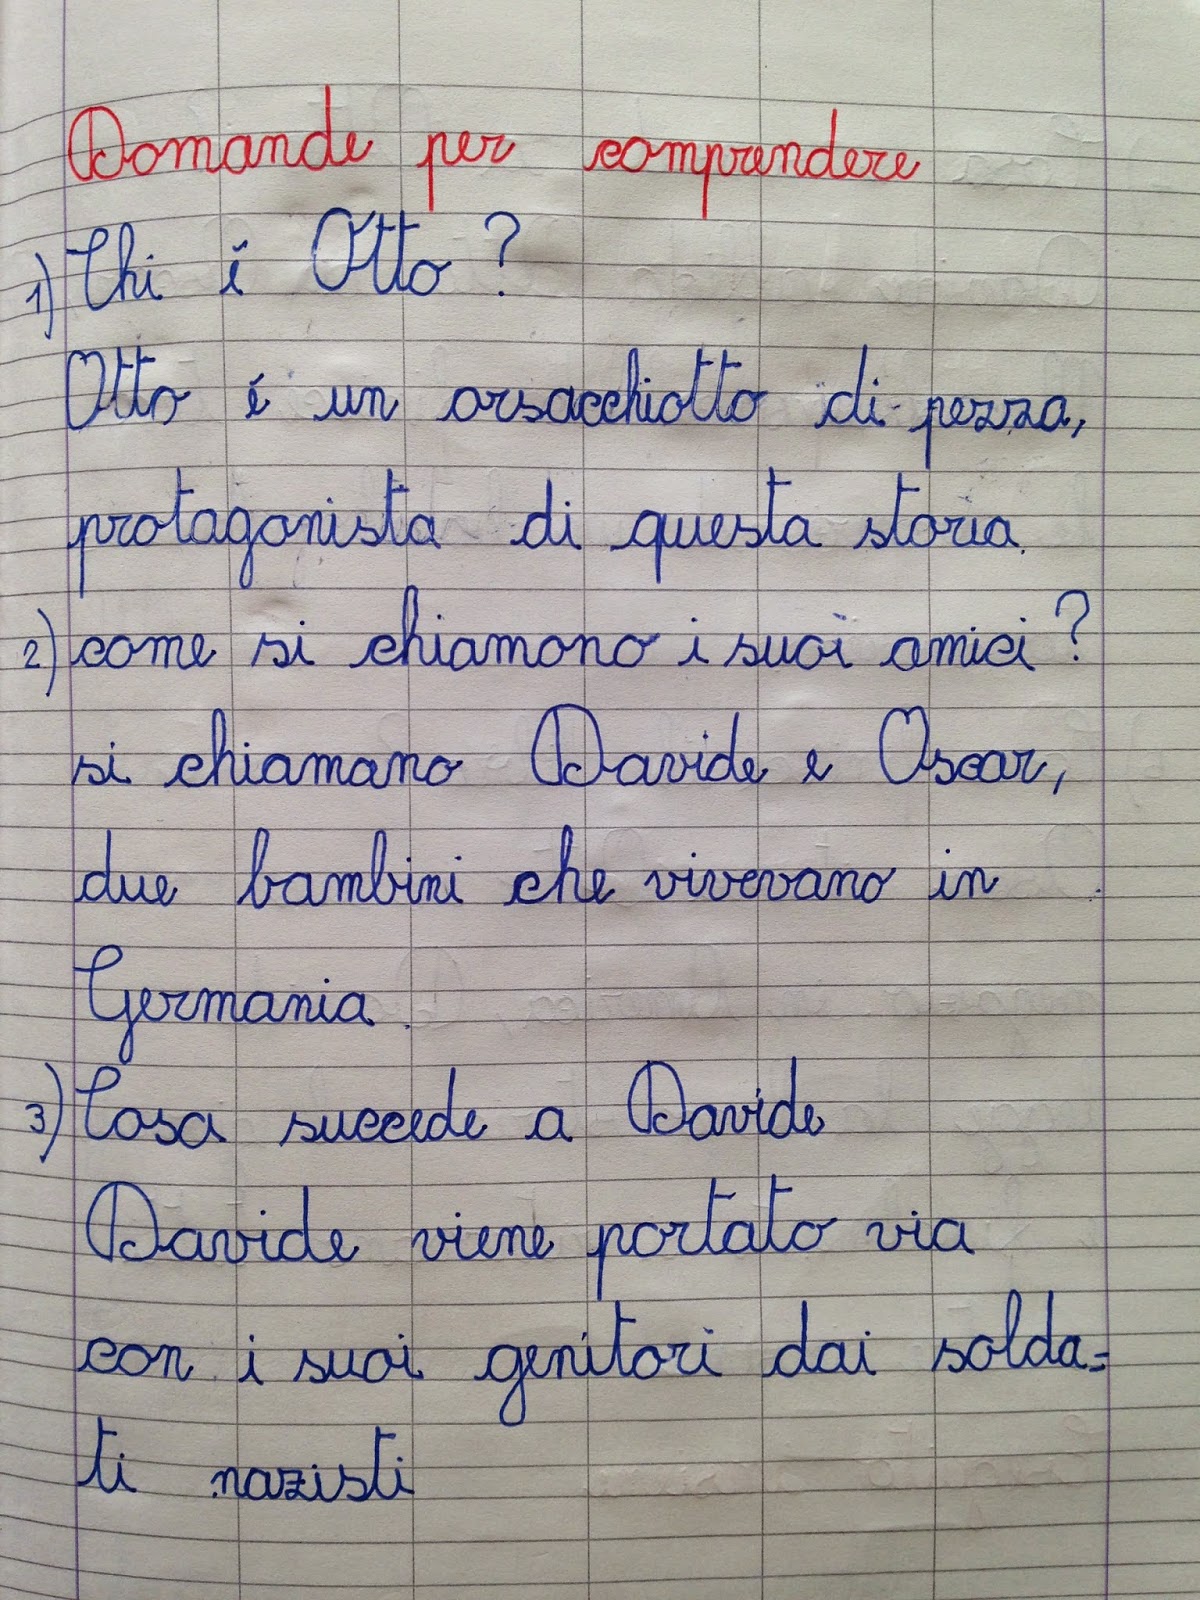 Domande per comprendere
1) Chi è Otto?
Otto è un orsacchiotto di pezza,
protagonista di questa storia.
2) come si chiamono i suoi amici?
si chiamano Davide e Oscar,
due bambini che vivevano in
Germania.
3) Cosa succede a Davide
Davide viene portato via
con i suoi genitori dai solda=
ti nazisti